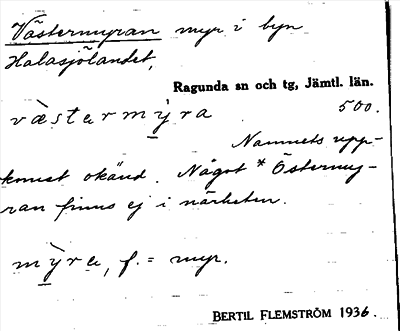 Västermyran myr i byn
Halasjölandet,
Ragunda sn och tg, Jämtl. län.
væstermy̌ra 500.
Namnets upp-
komst okänd. Något * Östermy-
ran finns ej i närheten.
my̌ra, f. = myr.
BERTIL FLEMSTRÖM 1936.